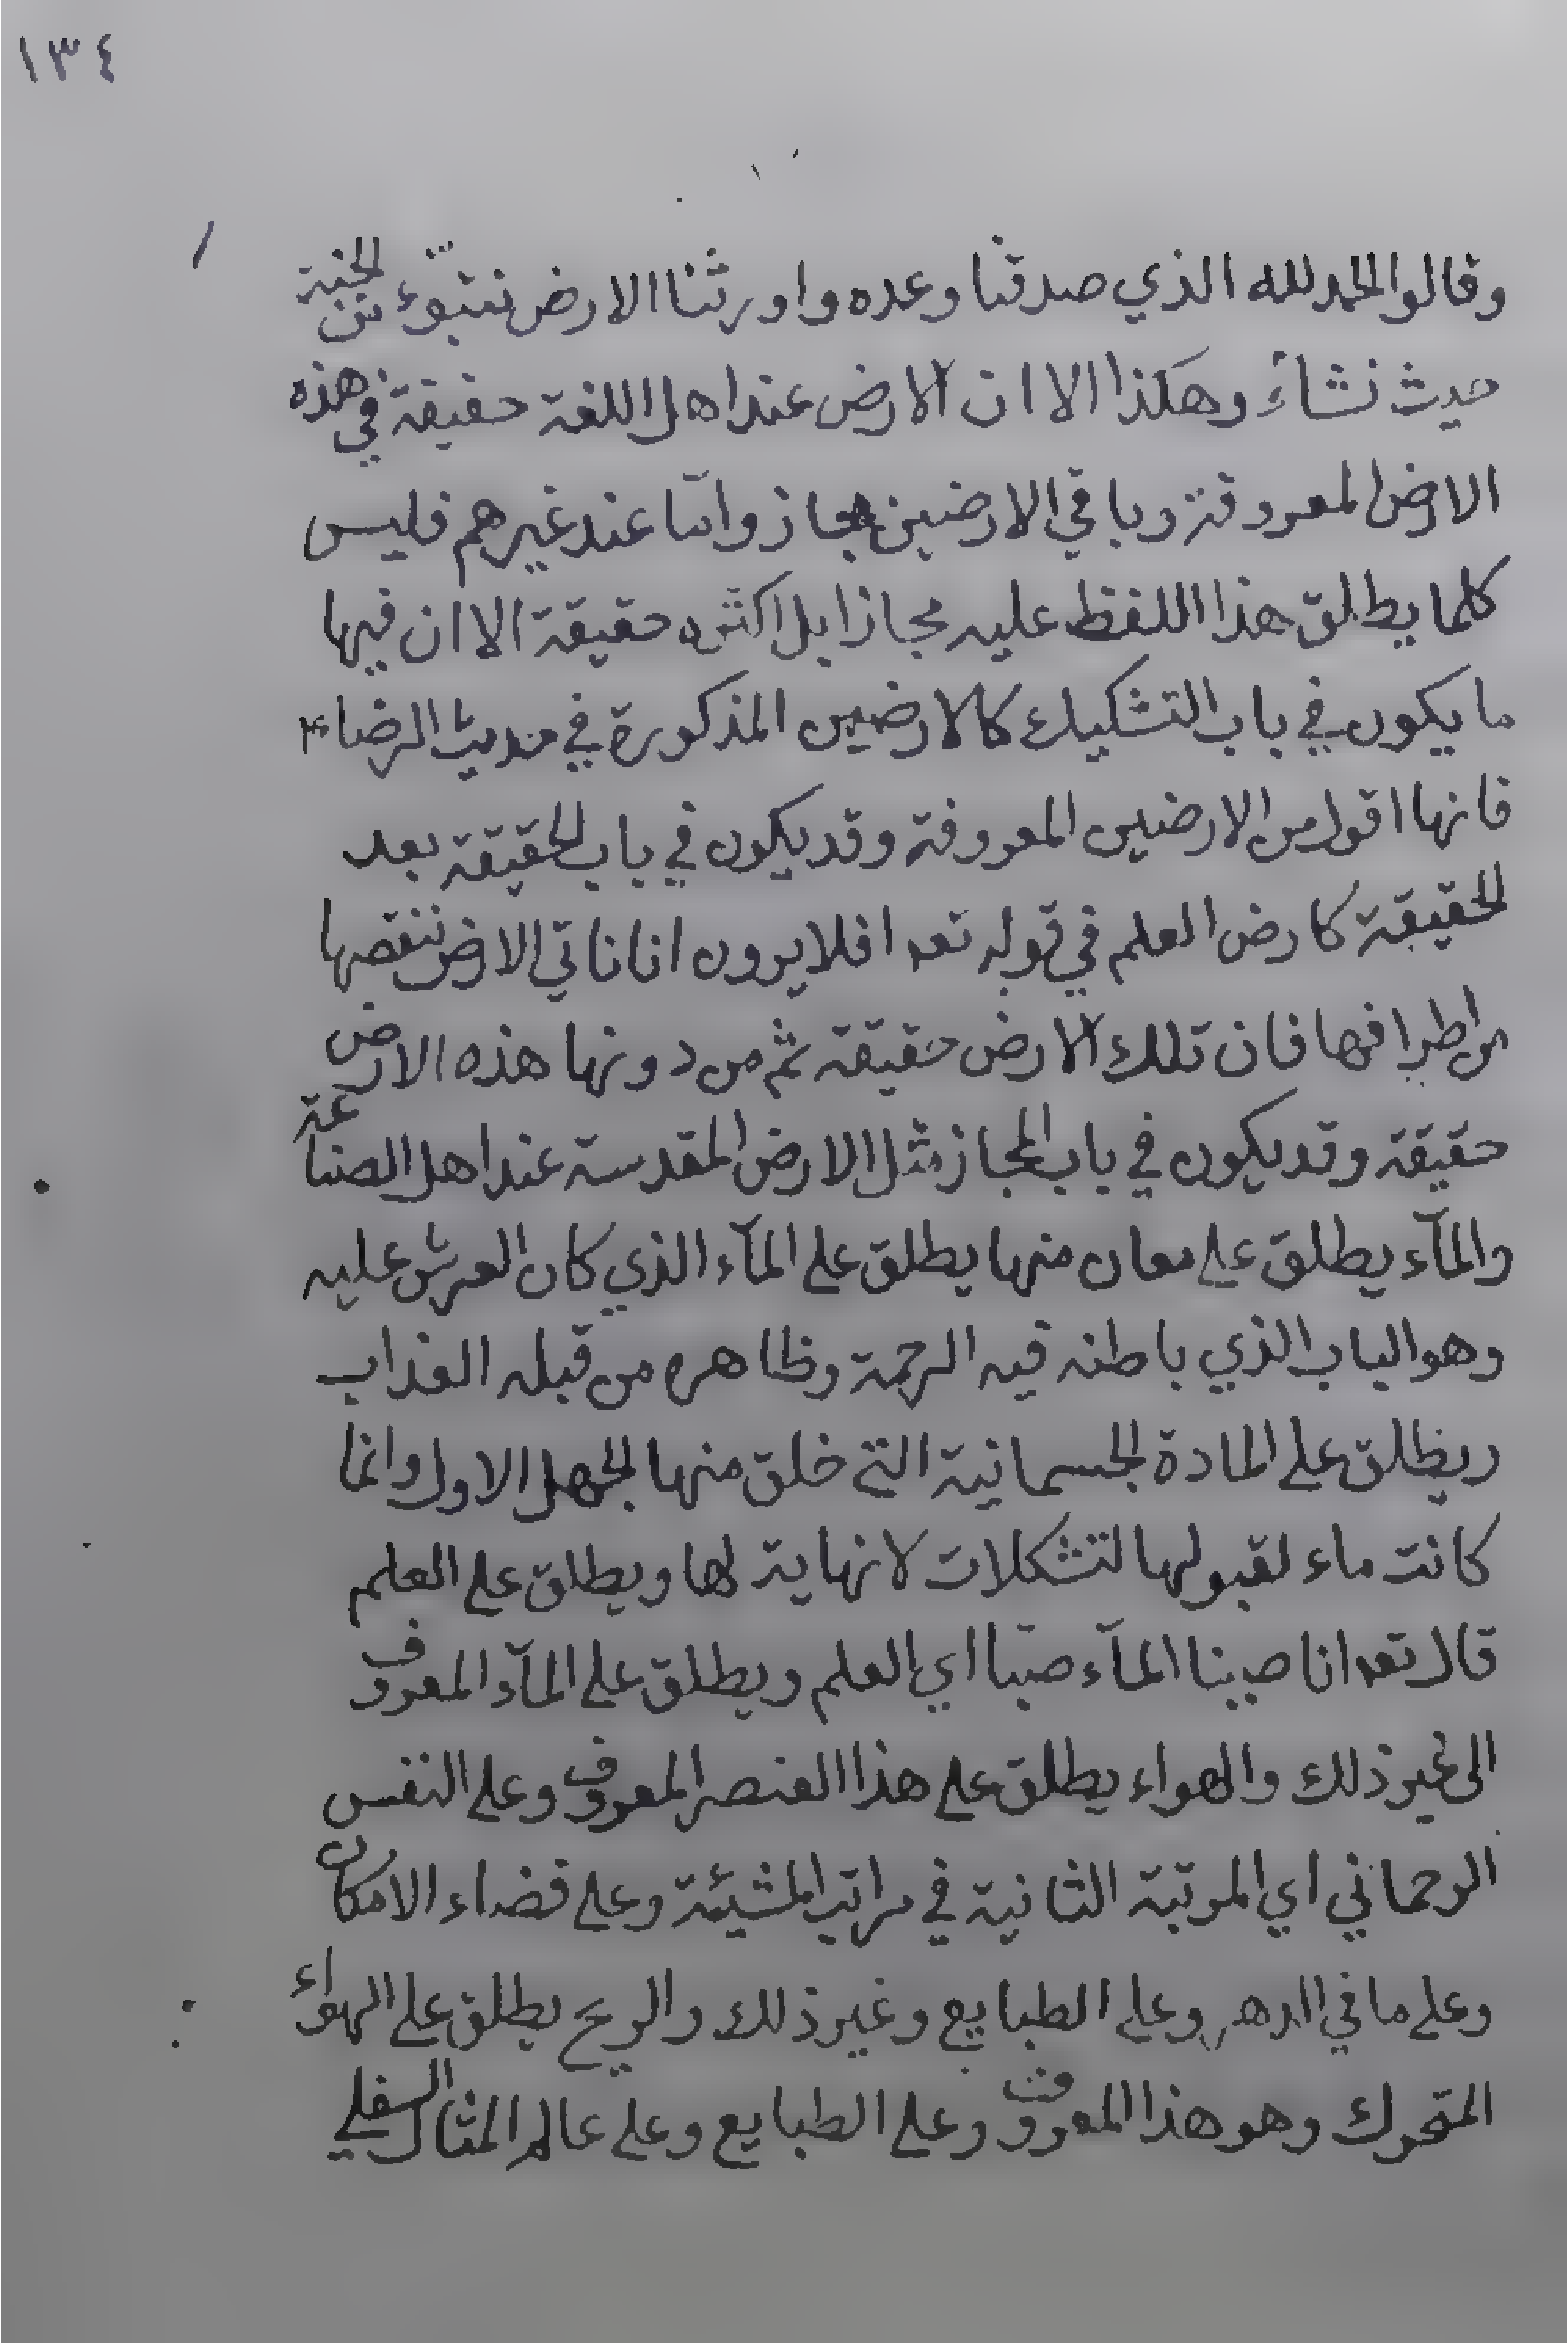 ١٣٤
وقالوا الحمد لله الذي صدقنا وعده واورثنا الارض نتبوّء من الجنة
حيث نشاء وهكذا الا ان الارض عند اهل اللغة حقيقة في هذه
الارض المعروفة وباقي الارضين مجاز وامّا عند غيرهم فليس
كلما يطلق هذا اللفظ عليه مجازا بل اكثره حقيقة الا ان فيها
ما يكون في باب التشكيك كالارضين المذكورة في حديث الرضا ۴
فانها اقول من الارضين المعروفة وقد يكون في باب الحقيقة بعد
الحقيقة كارض العلم في قوله تعه افلا يرون انا ناتي الارض ننقصها
من اطرافها فان تلك الارض حقيقة ثم من دونها هذه الارض
حقيقة وقد يكون في باب المجاز مثل الارض المقدسة عند اهل الصناعة
والمآء يطلق على معان منها يطلق على المآء الذي كان العرش عليه
وهو الباب الذي باطنه فيه الرحمة وظاهره من قبله العذاب
ويطلق على المادة الجسمانية التي خلق منها الجهل الاول وانما
كانت ماء لقبولها لتشكلات لا نهاية لها ويطلق على العلم
قال تعه انا صببنا المآء صبّا اي العلم ويطلق على المآء المعروف
الى غير ذلك والهواء يطلق على هذا العنصر المعروف وعلى النفس
الرحماني اي المرتبة الثانية في مراتب المشيئة وعلى فضاء الامكان
وعلى ما في الدهر وعلى الطبايع وغير ذلك والريح يطلق على الهواء
المتحرك وهو هذا المعروف وعلى الطبايع وعلى عالم المثال السفلي